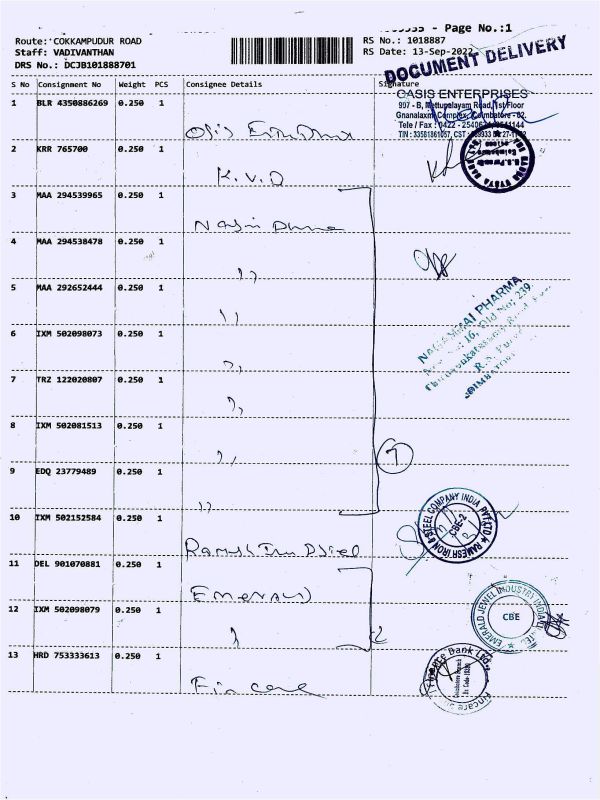 - Page No.:1
Route: COKKAMPUDUR ROAD
Staff: VADIVANTHAN
DRS No.: DCJB101888701
RS No.: 1018887
RS Date: 13-Sep-2022
DOCUMENT DELIVERY
S No Consignment No Weight PCS Consignee Details Signature
OASIS ENTERPRISES
907 - B, Mettupalayam Road, 1st Floor
Gnanalaxmi Complex, Coimbatore - 02.
Tele / Fax : 0422 -
1 BLR 4350886269 0.250 1
2 KRR 765700 0.250 1 K.V.O
3 MAA 294539965 0.250 1
4 MAA 294538478 0.250 1 ,,
5 MAA 292652444 0.250 1 ,,
NAGAMMAI PHARMA
16, Old No: 239,
6 IXM 502098073 0.250 1 ,,
7 TRZ 122020807 0.250 1 ,,
8 IXM 502081513 0.250 1 ,,
7
9 EDQ 23779489 0.250 1 ,,
10 IXM 502152584 0.250 1
RAMESH IRON & STEEL COMPANY INDIA PVT LTD
CBE-2
11 DEL 901070881 0.250 1 Emerald
12 IXM 502098079 0.250 1
2
EMERALD JEWEL INDUSTRY INDIA LTD.
CBE
13 HRD 753333613 0.250 1 Fincare
Fincare Bank Ltd.